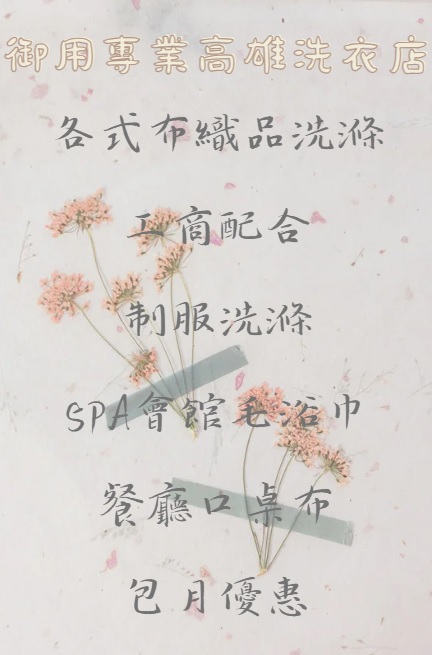 御用專業高雄洗衣店
各式布織品洗滌
工商配合
制服洗滌
SPA會館毛浴巾
餐廳口桌布
包月優惠